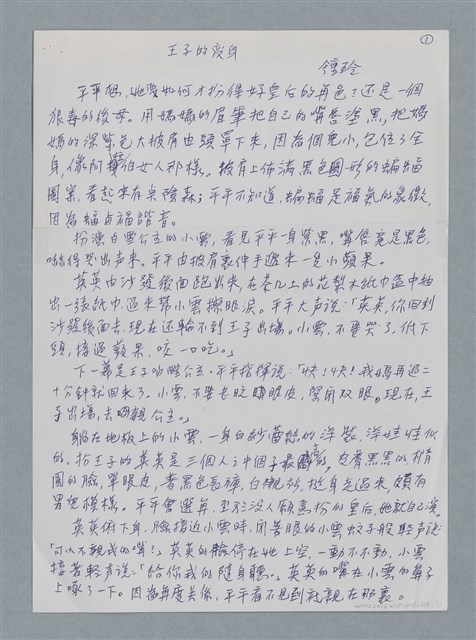 ①
王子的變身
平平想，她要如何才扮得好皇后的角色？還是一個
狠毒的後母。用媽媽的眉筆把自己的嘴唇塗黑，把媽
媽的深紫色大披肩由頭罩下來，因為個兒小，包住了全
身，像阿拉伯女人那樣。披肩上佈滿黑色圓形的蝙蝠
圖案，看起來有些陰森；平平不知道，蝙蝠是福氣的象徵，
因為蝠与福諧音。
扮演白雪公主的小雲，看見平平一身紫黑，嘴唇竟是黑色，
嚇得哭出声來。平平由披肩裏伸手遞來一隻小蘋果。
英英由沙發後面跑出來，在茶几上的花梨木紙巾盒中抽
出一張紙巾過來幫小雲擦眼淚。平平大声說：「英英，你回到
沙發後面去，現在还輪不到王子出場。小雲，不要哭了，低下
頭，接過蘋果，咬一口吃。」
下一幕是王子吻醒公主。平平指揮說：「快！快！我媽再過二
十分钟就回來了。小雲，不要老眨眼皮，緊閉双眼。現在，王
子出場，去吻親公主。」
躺在地板上的小雲，一身白紗蕾絲的洋裝，洋娃娃似
的，扮王子的英英是三個人之中個子最高，皮膚黑黑的，橢
圓的臉，單眼皮，著黑色長褲，白襯衫，挺身走過來，頗有
男兒模樣。平平會選角，至於没人願意扮的皇后，她就自己演。
英英俯下身，臉接近小雲時，閉著眼的小雲蚊子般輕声說：
「可以不親我的嘴？」英英的臉停在她上空，一動不動，小雲
接著輕声說：「給你我的隨身聽。」英英的嘴在小雲的鼻子
上啄了一下。因為角度关係，平平看不見到底親在那裏。